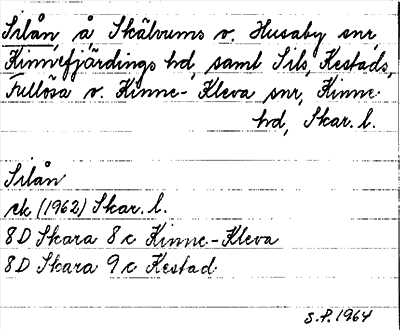 Silån, å Skälvums o. Husaby snr,
Kinnefjärdings hd, samt Sils, Kestads,
Fullösa o. Kinne-Kleva snr, Kinne
hd, Skar. l.
Silån
ek (1962) Skar. l.
8D Skara 8c Kinne-Kleva
8D Skara 9c Kestad
S.P. 1964